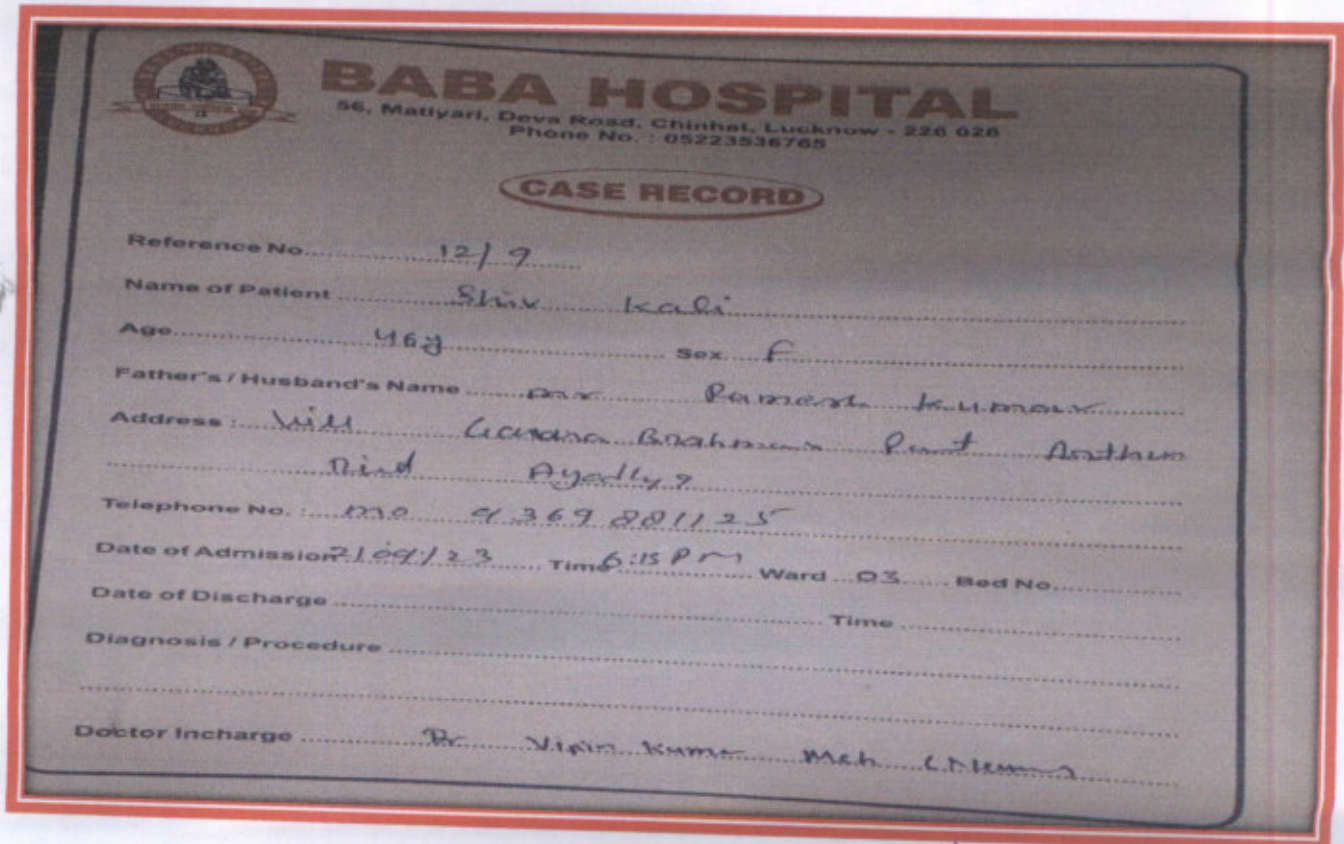 BABA HOSPITAL
56, Matiyari, Deva Road, Chinhat, Lucknow - 226 028
Phone No. : 05223536765
CASE RECORD
Reference No. 12/9
Name of Patient Shiv Kali
Age 46y Sex F
Father's / Husband's Name mr Ramesh Kumar
Address : Vill Brahman
Ayodhya
Telephone No. : mo 9369881125
Date of Admission /09/23 Time 6:15 PM Ward 03 Bed No.
Date of Discharge Time
Diagnosis / Procedure
Doctor Incharge Dr Vipin Kumar Mch